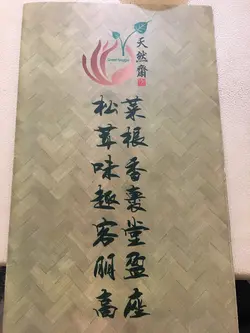 天然齋
菜根香堂盈座
松茸味趣客朋高